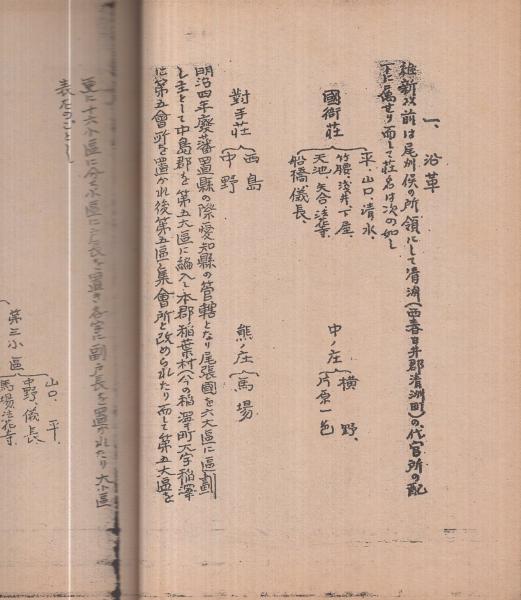 一、沿革
維新以前は尾州侯の所領にして清洲(西春日井郡清洲町)の代官所の配
下に属せり而して荘名は次の如し
國衙荘
平、山口、清水、
竹腰、浅井、下屋、
天池、矢合、法花寺、
船橋、儀長、
中ノ庄
横野、
片原一色
對手荘
西島
中野
熊ノ庄
馬場
明治四年廢藩置縣の際愛知縣の管轄となり尾張國を六大區に區劃
し主として中島郡を第五大區に編入し本郡稲葉村(今の稲澤町大字稲澤
に第五會所を置かれ後第五區と集會所と改められたり而して第五大區を
更に十六小區に分ち小區に戸長を置き各字に副戸長を置かれたり大小區
表左のごとし
第三小區
山口、平、
中野、儀長
馬場法花寺、